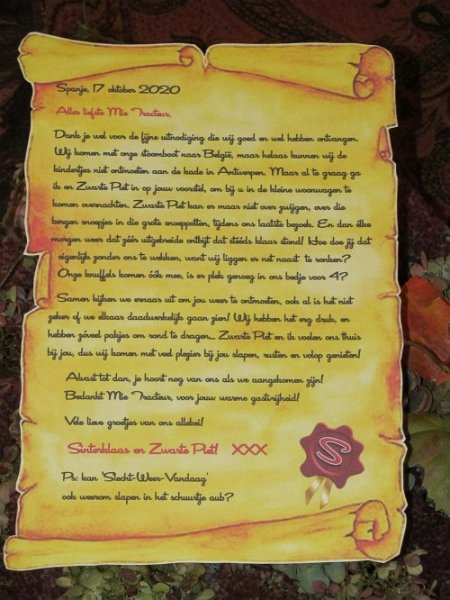 Spanje, 17 oktober 2020
Aller liefste Mie Tracteur,
Dank je wel voor de fijne uitnodiging die wij goed en wel hebben ontvangen.
Wij komen met onze stoomboot naar België, maar helaas kunnen wij de
kindertjes niet ontmoeten aan de kade in Antwerpen. Maar al te graag ga
ik en Zwarte Piet in op jouw voorstel, om bij u in de kleine woonwagen te
komen overnachten. Zwarte Piet kan er maar niet over zwijgen, over die
bergen snoepjes in die grote snoeppotten, tijdens ons laatste bezoek. En dan élke
morgen weer dat zéér uitgebreide ontbijt dat stééds klaar stond! Hoe doe jij dat
eigenlijk zonder ons te wekken, want wij liggen er net naast te ronken?
Onze knuffels komen óók mee, is er plek genoeg in ons bedje voor 4?
Samen kijken we ernaar uit om jou weer te ontmoeten, ook al is het niet
zeker of we elkaar daadwerkelijk gaan zien! Wij hebben het erg druk, en
hebben zóveel pakjes om rond te dragen... Zwarte Piet en ik voelen ons thuis
bij jou, dus wij komen met veel plezier bij jou slapen, rusten en volop genieten!
Alvast tot dan, je hoort nog van ons als we aangekomen zijn!
Bedankt Mie Tracteur, voor jouw warme gastvrijheid!
Vele lieve groetjes van ons allebei!
Sinterklaas en Zwarte Piet! XXX
S
Ps: kan 'Slecht-Weer-Vandaag'
ook weerom slapen in het schuurtje aub?